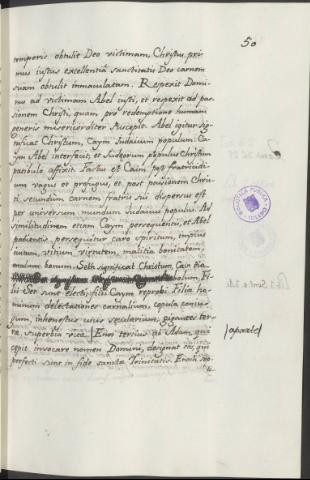 50
temporis obtulit Deo victimam, Christus pri
mus iustus excellentiâ sanctitatis Deo carnem
suam obtulit immaculatam. Respexit Domi
nus ad victimam Abel iusti, et respexit ad pas
sionem Christi, quam pro redemptione humani
generis misericorditer suscepit. Abel igitur sig
nificat Christum, Caym Iudaicum populum. Ca
ym Abel interfecit, et Iudeorum populus Christum
patibulo affixit. Factus et Cain post fratricidi
um vagus et profugus, et post passionem Chris
ti secundum carnem fratris sui dispersus est
per universum mundum Iudaicus populus. Ad
similitudinem etiam Caym persequentis, et Abel
patientis, persequitur caro spiritum, impius
iustum, vitium virtutem, malitia bonitatem,
malum bonum. Seth significat Christum, Cain dia
bolum, Fi
lii Set sunt electi, filii Caym reprobi. Filiæ ho
minum delectationes carnalium, copula coniu
gum, inhonestus unus secularium, gigantes ter
ræ superbia vitæ. Enos tertius ab Adam, qui
cepit invocare nomen Domini, designat eos, qui
perfecti sunt in fide sanctæ Trinitatis. Enoch sep
aparte